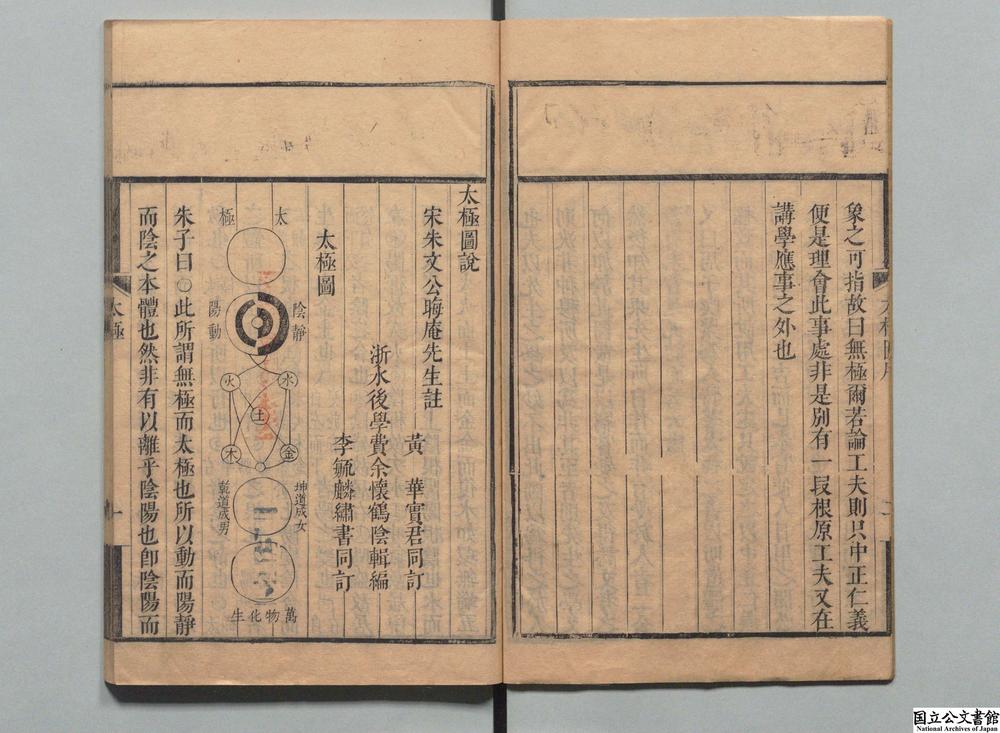 象之可指故曰無極爾若論工夫則只中正仁義
便是理會此事處非是別有一段根原工夫又在
講學應事之外也
太極圖說
宋朱文公晦庵先生註
黃華實君同訂
浙水後學費余懷鶴陰輯編
李毓麟繡書同訂
太極圖
太極
陰靜
陽動
水
火
土
金
木
坤道成女
乾道成男
萬物化生
朱子曰〇此所謂無極而太極也所以動而陽靜
而陰之本體也然非有以離乎陰陽也卽陰陽而
太極
一
国立公文書館
National Archives of Japan